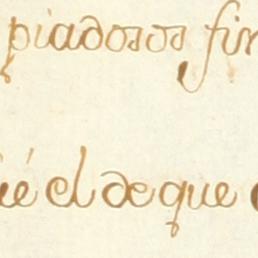 piadosos fin
ué el de que